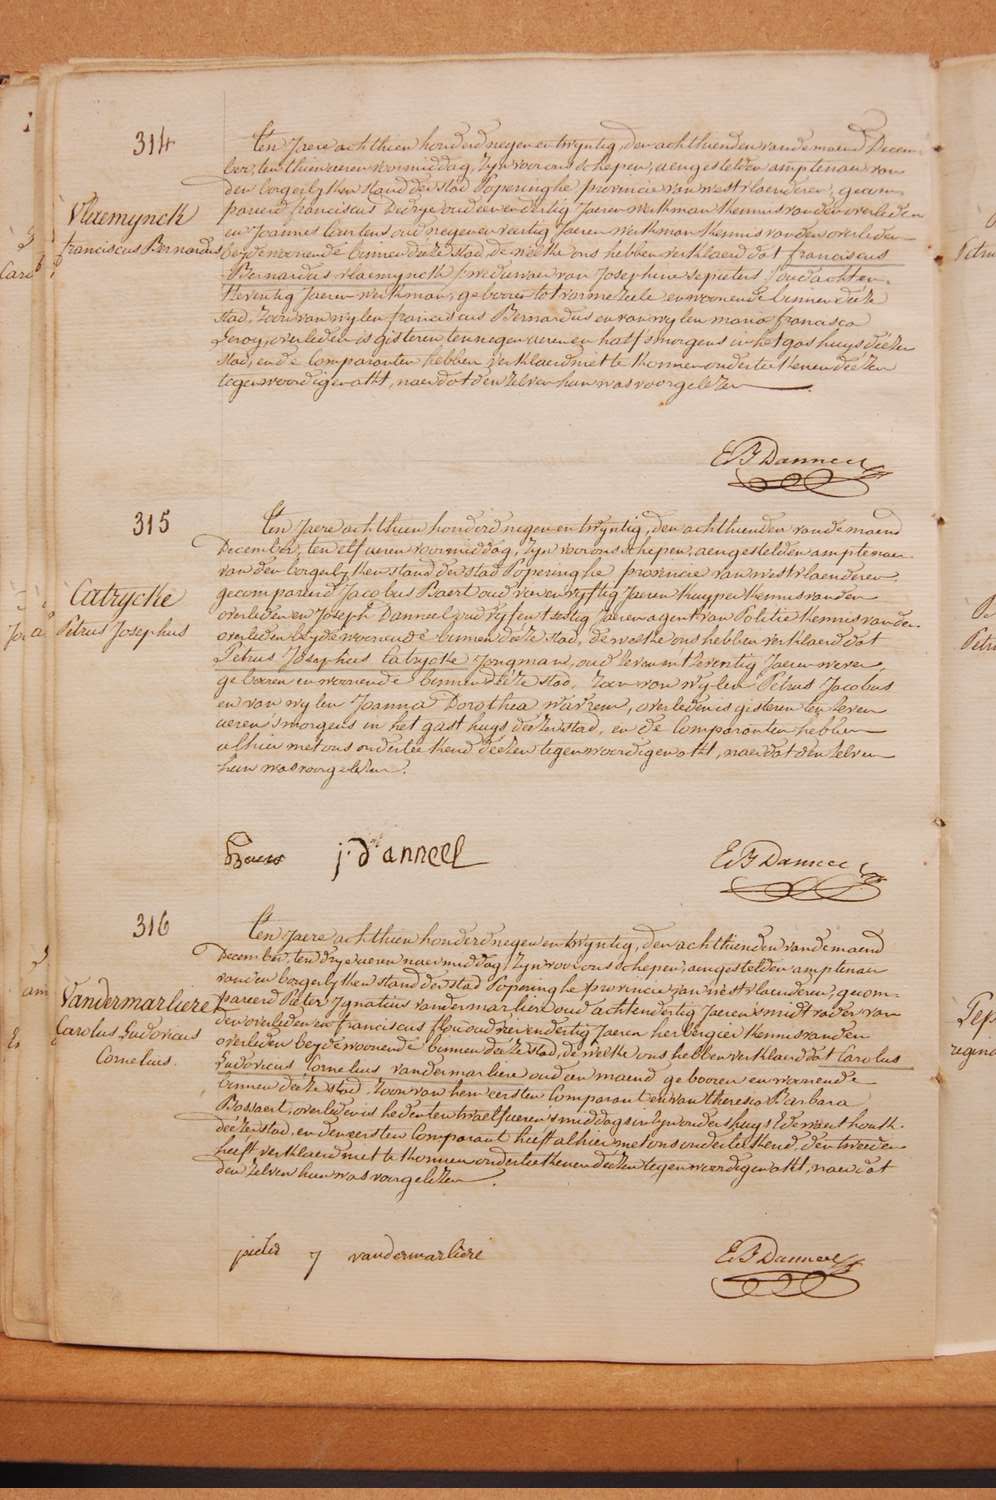 314
Vlaemynck
franciscus Bernardus
Ten Jaere achthien honderd negen en twyntig, den achthienden van de maend Decem-
ber, ten thien ueren voormiddag, zyn voor ons schepen, aengestelden amptenaer van
den borgerlyken stand der stad Poperinghe provincie van westvlaenderen, gecom-
pareerd franciscus Deirye oud een en dertig Jaeren werkman kennis van den overleden
en Joannes Geertens oud negen en veertig Jaeren werkman kennis van den overleden
beyde woonende binnen deeze stad, de welke ons hebben verklaerd dat franciscus
Bernardus vlaemynck weduwaer van Josephine Sepieters oud acht en
tzeventig Jaeren werkman, gebooren tot varme zeele en woonende binnen deeze
stad, zoon van wylen franciscus Bernardus en van wylen maria francisca
Leroy, overleden is gisteren ten negen ueren en half 's morgens in het gashuys deezer
stad, en de Comparanten hebben verklaerd niet te konnen onderteekenen deezen
tegenwoordigen akt, naer dat den zelven hun was voorgelezen
E B Danneel
315
Catrycke
Petrus Josephus
Ten Jaere achthien honderd negen en twyntig, den achthienden van de maend
December, ten elf ueren voormiddag, zyn voor ons schepen, aengestelden amptenaer
van den borgerlyken stand der stad Poperinghe provincie van westvlaenderen,
gecompareerd Jacobus Baert oud vier en vyftig Jaeren kuyper kennis van den
overleden en Joseph Danneel oud vyf en tsestig Jaeren agent van Politie kennis van den
overleden beyde woonende binnen deeze stad, de welke ons hebben verklaerd dat
Petrus Josephus Catrycke Jongman, oud zeven en tzeventig Jaeren wever,
gebooren en woonende binnen deeze stad, zoon van wylen Petrus Jacobus
en van wylen Joanna Dorothea warrem, overleden is gisteren ten zeven
ueren 's morgens in het gasthuys deezer stad, en de Comparanten hebben
alhier met ons onderteekend deezen tegenwoordigen akt, naer dat den zelven
hun was voorgelezen.
Baert j. d'anneel E B Danneel
316
Vandermarliere
Carolus Ludovicus
Cornelius
Ten Jaere achthien honderd negen en twyntig, den achthienden van de maend
December, ten drye ueren naermiddag, zyn voor ons schepen, aengestelden amptenaer
van den borgerlyken stand der stad Poperinghe provincie van westvlaenderen, gecom-
pareerd Pieter Ignatius vandermarliere oud acht en dertig Jaeren smidt vader van
den overleden en franciscus flou oud vier en dertig Jaeren herbergier kennis van den
overleden beyde woonende binnen deeze stad, de welke ons hebben verklaerd dat Carolus
Ludovicus Cornelius vandermarliere oud een maend gebooren en woonende
binnen deeze stad, zoon van hem eersten Comparant en van theresia Barbara
Bossaert, overleden is heden ten twaelf ueren 's middags in zyn ouders huys
deezer stad, en den eersten Comparant heeft alhier met ons onderteekend, den tweeden
heeft verklaerd niet te konnen onderteekenen deezen tegenwoordigen akt, naer dat
den zelven hun was voorgelezen
pieter J vandermarliere E B Danneel